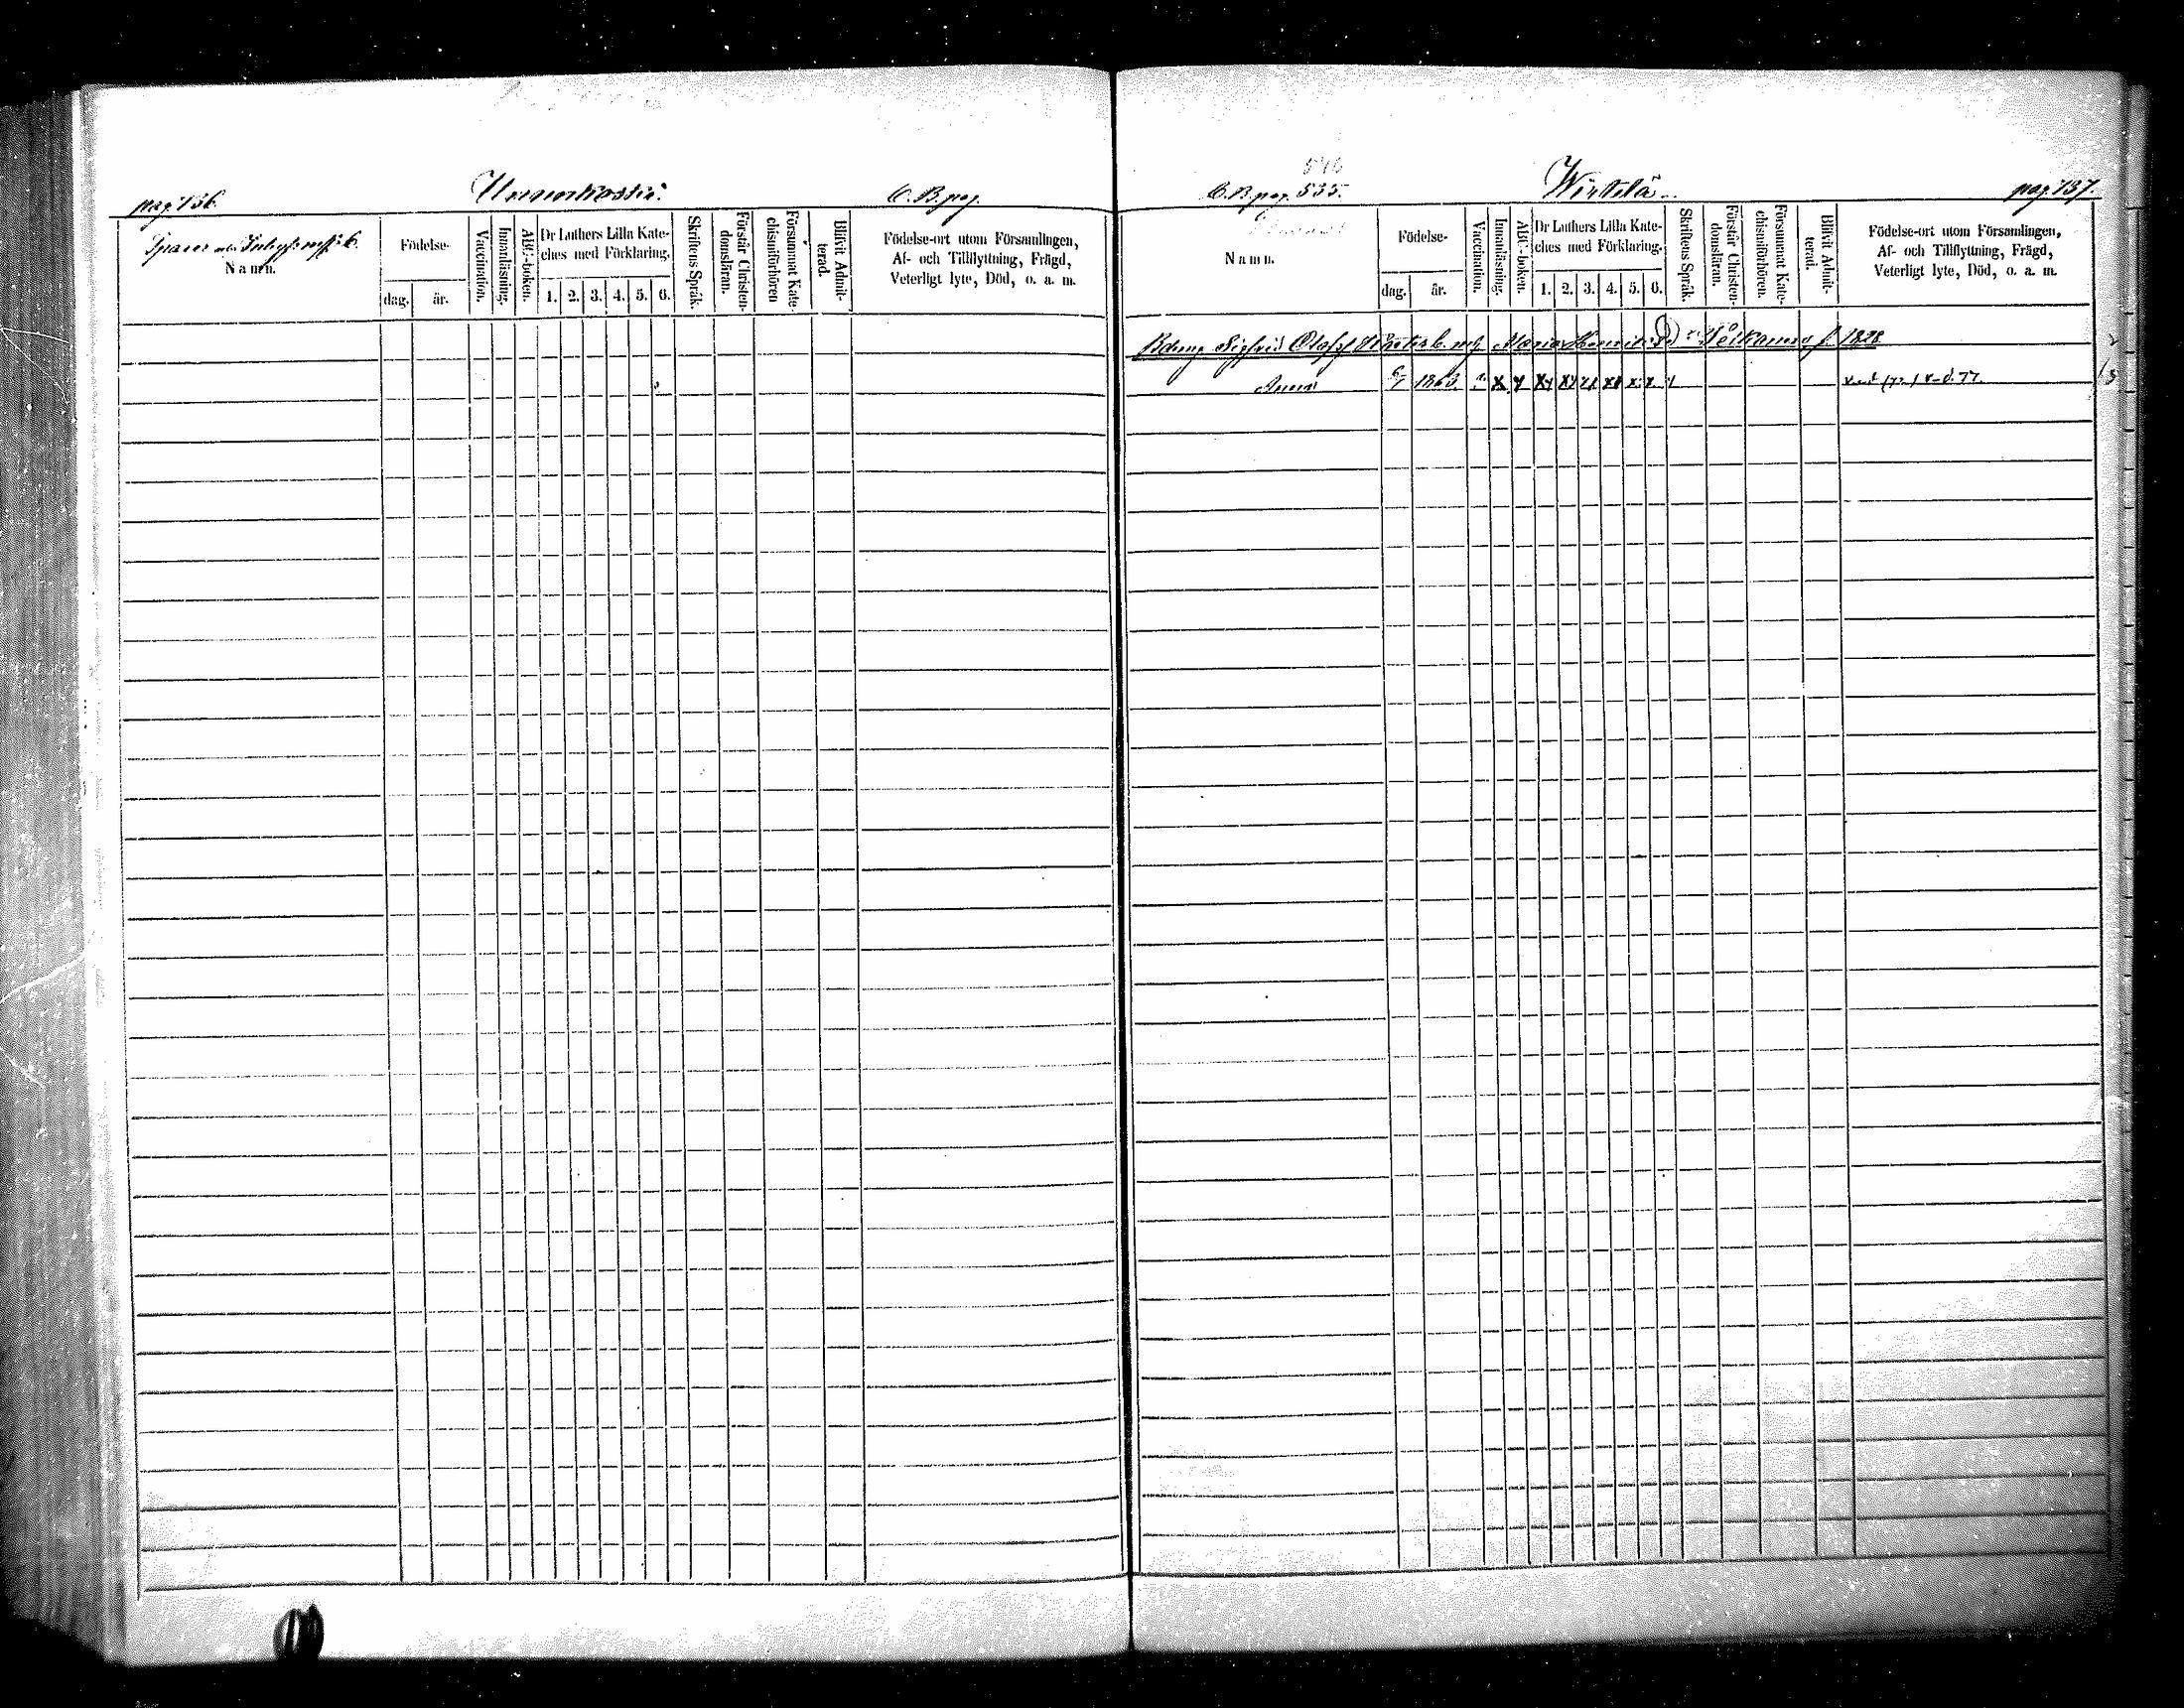 pag. 136.
C. B. pag.
Namn.
Födelse-
dag.
år.
Vaccination.
Innanläsning.
ABC-boken.
Dr Luthers Lilla Kate-
ches med Förklaring.
1. 2. 3. 4. 5. 6.
Skriftens Språk.
Förstår Christen-
domsläran.
Försummat Kate-
chismiförhören
Blifvit Admit-
terad.
Födelse-ort utom Församlingen,
Af- och Tillflyttning, Frägd,
Veterligt lyte, Död, o. a. m.
546
C. B. pag. 535.
Wirtelä.
pag. 137.
Namn.
Födelse-
dag.
år.
Vaccination.
Innanläsning.
ABC-boken.
Dr Luthers Lilla Kate-
ches med Förklaring.
1. 2. 3. 4. 5. 6.
Skriftens Språk.
Förstår Christen-
domsläran.
Försummat Kate-
chismiförhören.
Blifvit Admit-
terad.
Födelse-ort utom Församlingen,
Af- och Tillflyttning, Frägd,
Veterligt lyte, Död, o. a. m.
Sigfrid Olofss Maria f. 1828
Anna 6/1 1863.